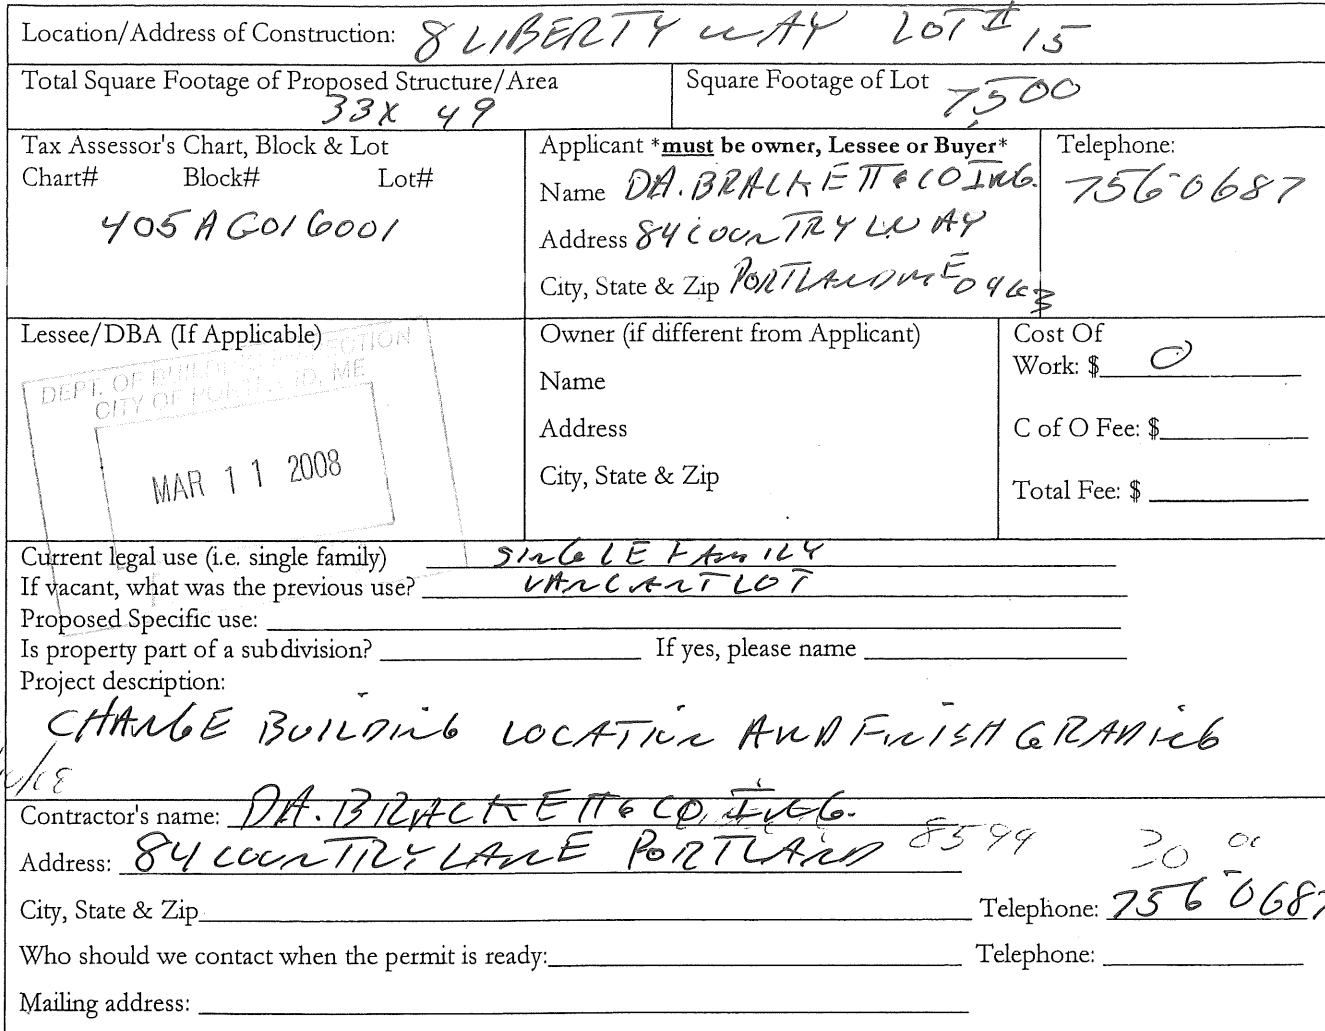 Location/Address of Construction: 8 LIBERTY WAY LOT # 15
Total Square Footage of Proposed Structure/Area Square Footage of Lot 7500
33X 49
Tax Assessor's Chart, Block & Lot
Chart# Block# Lot#
405 A G016001
Applicant *must be owner, Lessee or Buyer*
Name DA. BRACKETT & CO INC.
Address 84 COUNTRY WAY
City, State & Zip PORTLAND ME
Telephone:
756-0687
Lessee/DBA (If Applicable)
DEPT. OF BUILDING INSPECTION
CITY OF PORTLAND, ME
MAR 11 2008
Owner (if different from Applicant)
Name
Address
City, State & Zip
Cost Of
Work: $ 0
C of O Fee: $
Total Fee: $
Current legal use (i.e. single family) SINGLE FAMILY
If vacant, what was the previous use? VANCANT LOT
Proposed Specific use:
Is property part of a subdivision? If yes, please name
Project description:
CHANGE BUILDING LOCATION AND FINISH GRADING
Contractor's name: DA. BRACKETT & CO, INC.
Address: 84 COUNTRY LANE PORTLAND 8599 30 00
City, State & Zip Telephone: 756-0687
Who should we contact when the permit is ready: Telephone:
Mailing address: